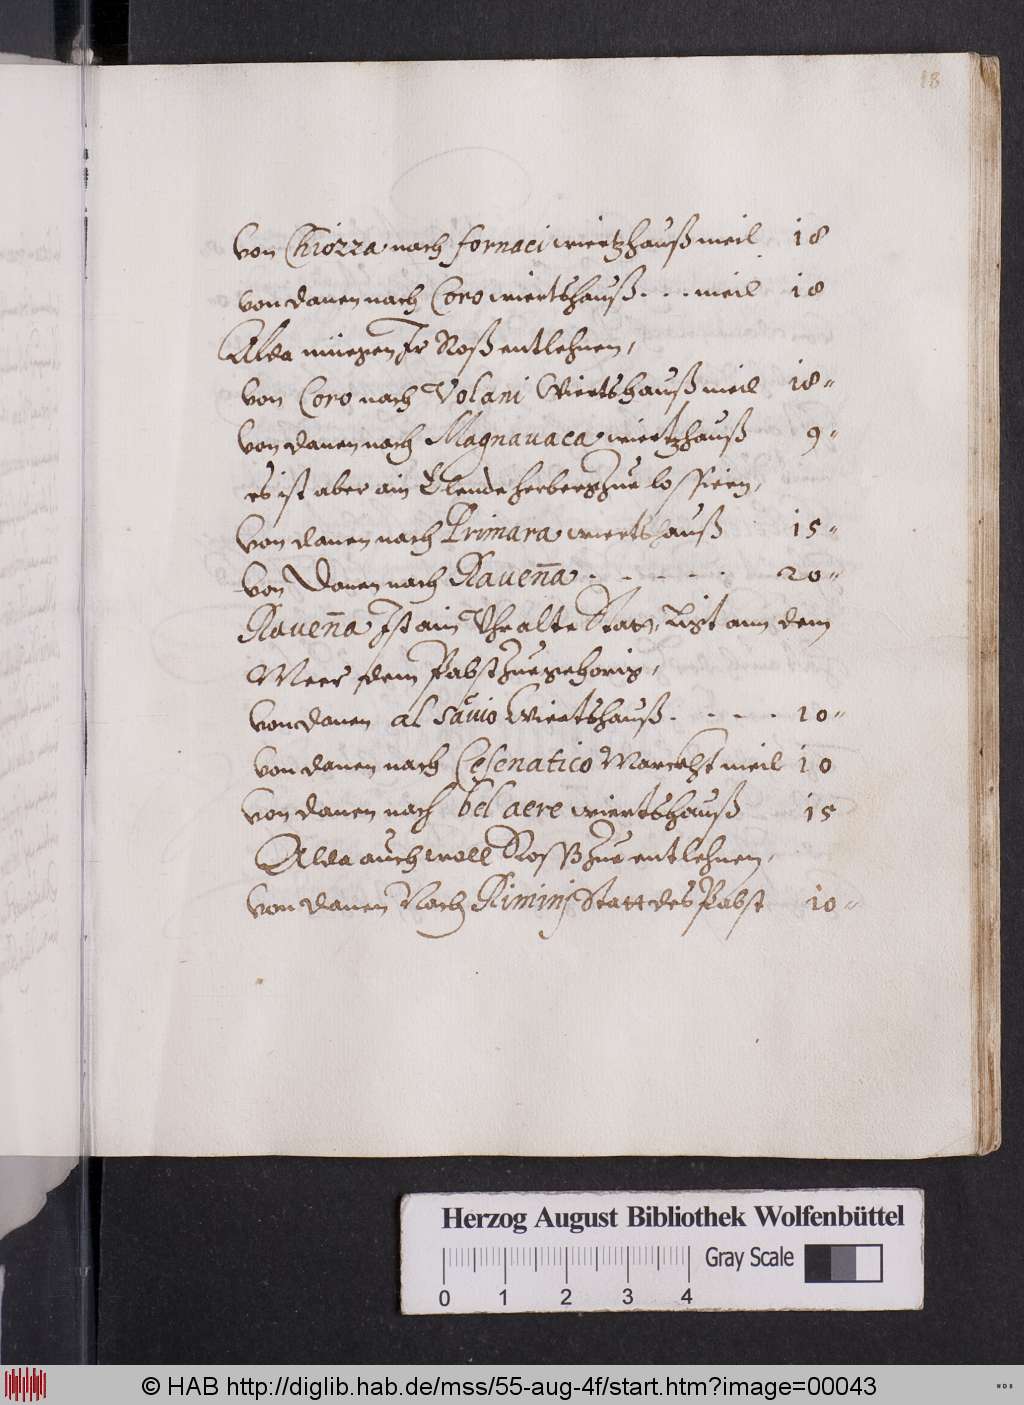 18
Von Chiozza nach fornaci wiertzhauß meil 18
Von danen nach Coro wiertshauß . . . meil 18
Alda müegen Ir Roß entlehnen,
Von Coro nach Volani Wiertshauß meil 18"
Von danen nach Magnauaca wiertzhauß 9"
es ist aber ain Elende herberg Zue lossiern,
Von danen nach Primara wiertshauß 15"
Von Danen nach Rauen̄a . . . . . 20"
Rauen̄a Ist ain Vhralte Statt, Ligt ann dem
Meer dem Pabst Zuegehorig,
Von danen al Sauio Wiertshauß . . . . 10"
Von danen nach Cesenatico Marckht meil 10
Von danen nach bel aere wiertshauß 15
Alda auch woll Roß Zue entlehnen,
Von danen Nach Riminj Statt des Pabst 10"
Herzog August Bibliothek Wolfenbüttel
Gray Scale
0 1 2 3 4
© HAB http://diglib.hab.de/mss/55-aug-4f/start.htm?image=00043